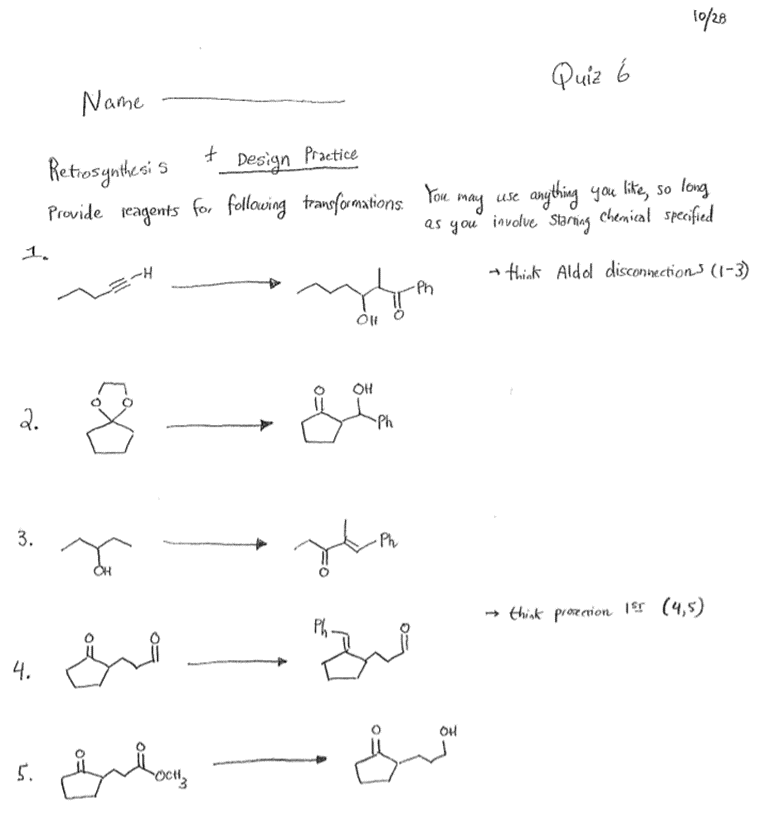 10/28
Quiz 6
Name
Retrosynthesis + Design Practice
Provide reagents for following transformations. You may use anything you like, so long
as you involve starting chemical specified
1.
H
OH
O
Ph
→ think Aldol disconnections (1-3)
2.
O O
O
OH
Ph
3.
OH
O
Ph
→ think protection 1st (4,5)
4.
O
O
Ph
O
5.
O
O
OCH3
O
OH